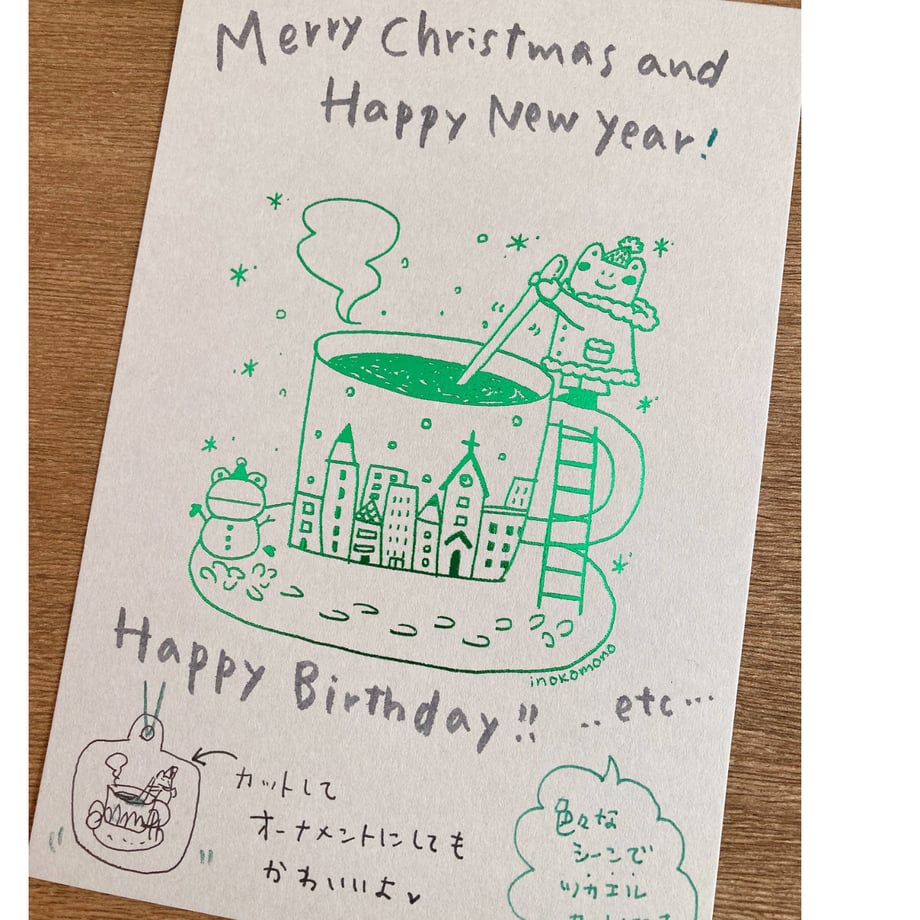 Merry Christmas and
Happy New year!
inokomono
Happy Birthday!! ‥etc…
カットして
オーナメントにしても
かわいいよ♥
色々な
シーンで
ツカエル